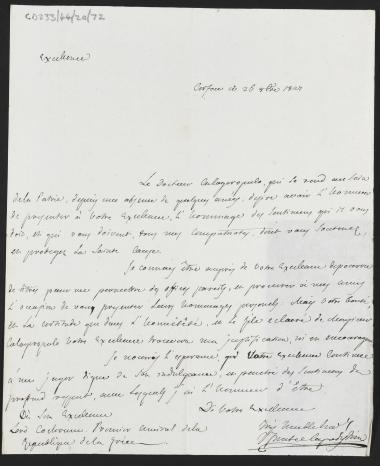 GD233/44/20/72
Excellence
Corfou le 26 8bre 1827
Le Docteur Calogeropulo, qui se rend au sein
de la Patrie, depuis une absence de quelques années, désire avoir l'honneur
de présenter à Votre Excellence, l'hommage des sentimens qui Vous
doit, et qui vous doivent, tous mes compatriotes, dont vous soutenez,
et protegez la Sainte Cause.
Je connais être auprès de Votre Excellence dépourvu
de titres pour me permettre des offices pareils, et procurer à mes amis
l'occasion de vous présenter leurs hommages personels. Mais votre bonté,
et la certitude que dans l'honnêteté, et le zèle éclairé de Monsieur
Calogeropulo Votre Excellence trouvera ma justification, m'en encouragent
Je nourris l'esperance, que Votre Excellence continue
à me juger digne de Son indulgence, et penetré des sentimens du
profond respect, avec lesquels j'ai l'honneur d'être
Di Son Excellence
Lord Cochrane, Premier Amiral de la
République de la Grèce
Di Votre Excellence